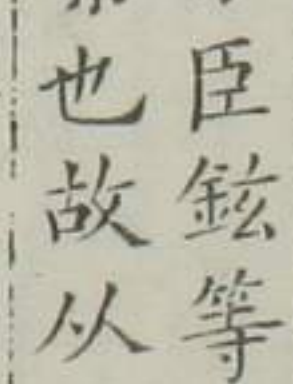 臣鉉等
也故从